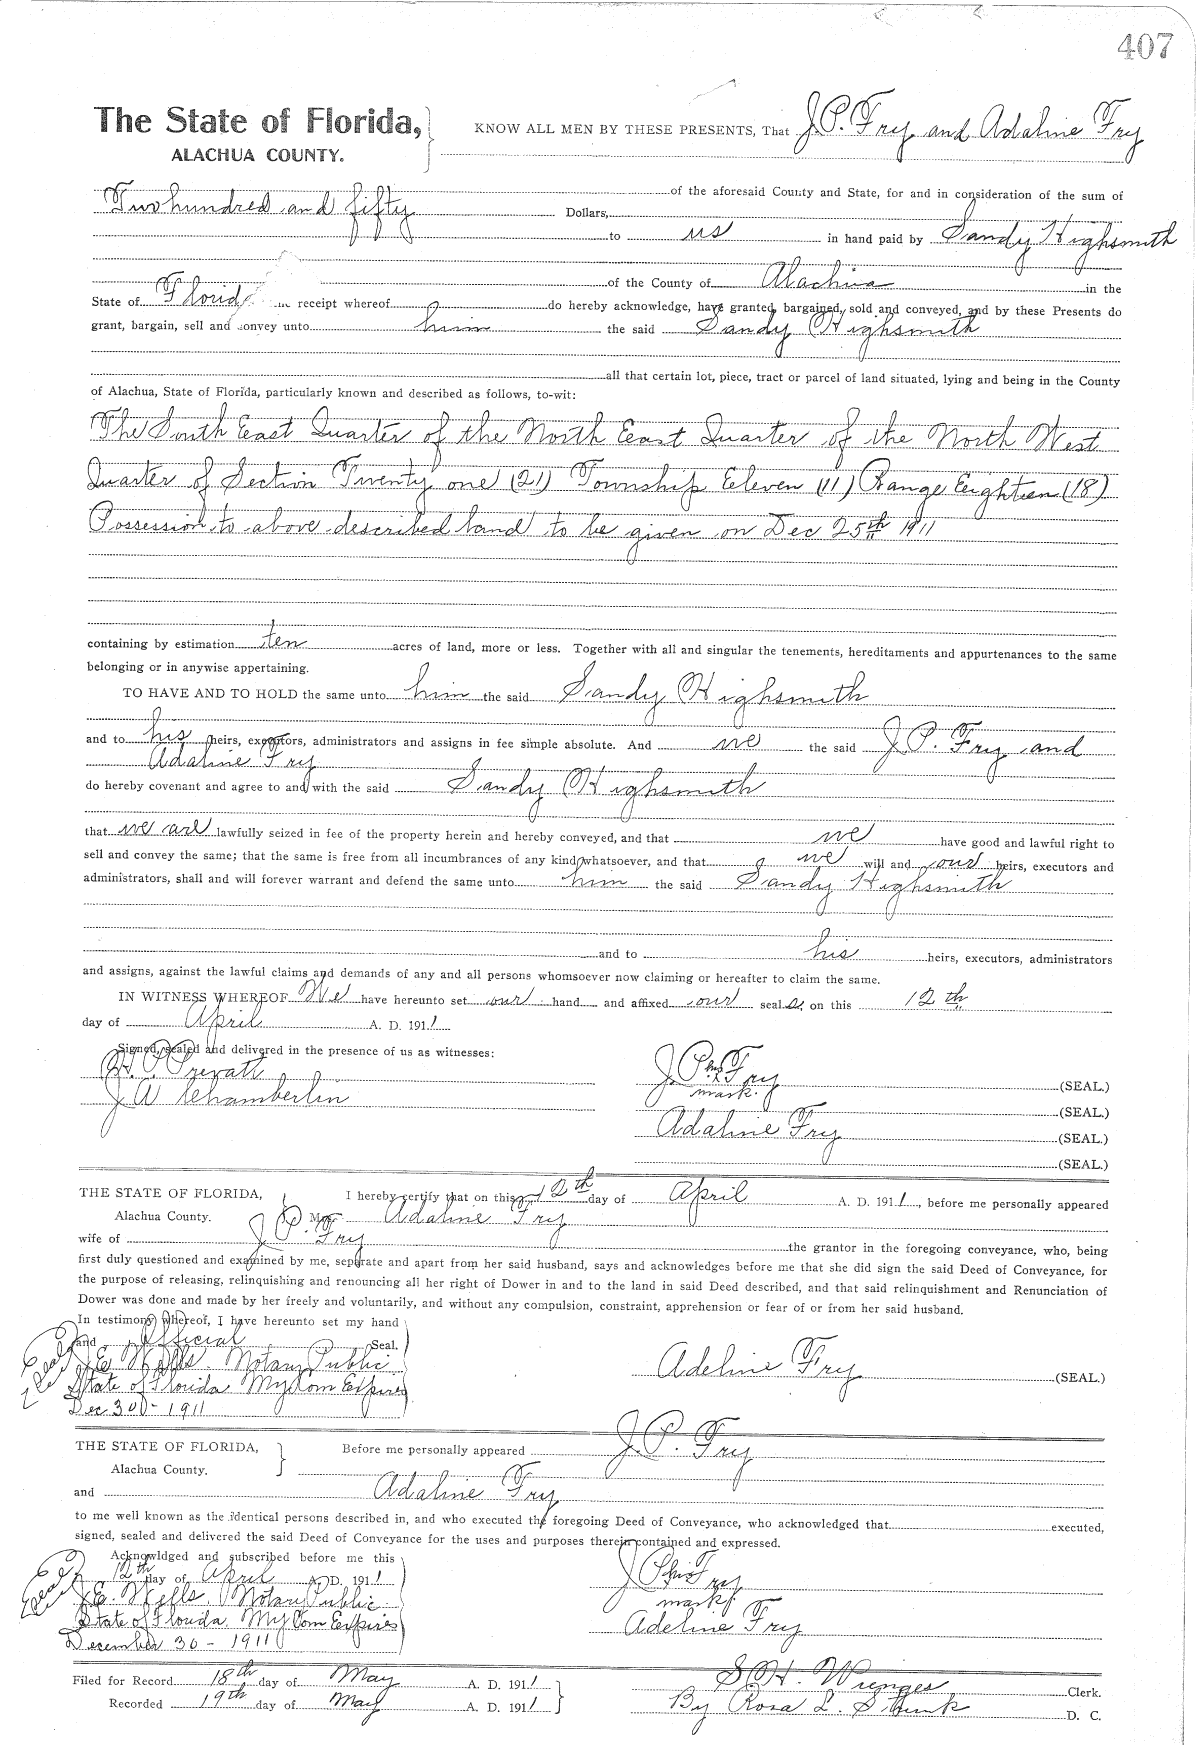 407
The State of Florida, KNOW ALL MEN BY THESE PRESENTS, That J.P. Fry and Adaline Fry
ALACHUA COUNTY.
of the aforesaid County and State, for and in consideration of the sum of
Two hundred and fifty Dollars,
to us in hand paid by Sandy Highsmith
of the County of Alachua in the
State of Florida receipt whereof do hereby acknowledge, have granted, bargained, sold and conveyed, and by these Presents do
grant, bargain, sell and convey unto him the said Sandy Highsmith
all that certain lot, piece, tract or parcel of land situated, lying and being in the County
of Alachua, State of Florida, particularly known and described as follows, to-wit:
The South East Quarter of the North East Quarter of the North West
Quarter of Section Twenty one (21) Township Eleven (11) Range Eighteen (18)
Possession to above described land to be given on Dec 25th 1911
containing by estimation ten acres of land, more or less. Together with all and singular the tenements, hereditaments and appurtenances to the same
belonging or in anywise appertaining.
TO HAVE AND TO HOLD the same unto him the said Sandy Highsmith
and to his heirs, executors, administrators and assigns in fee simple absolute. And we the said J.P. Fry and
Adaline Fry
do hereby covenant and agree to and with the said Sandy Highsmith
that we are lawfully seized in fee of the property herein and hereby conveyed, and that we have good and lawful right to
sell and convey the same; that the same is free from all incumbrances of any kind whatsoever, and that we will and our heirs, executors and
administrators, shall and will forever warrant and defend the same unto him the said Sandy Highsmith
and to his heirs, executors, administrators
and assigns, against the lawful claims and demands of any and all persons whomsoever now claiming or hereafter to claim the same.
IN WITNESS WHEREOF We have hereunto set our hand and affixed our seals on this 12th
day of April A. D. 1911
Signed, sealed and delivered in the presence of us as witnesses:
H. P. Prevatt
J. P. his x Fry (SEAL.)
mark.
J W Chamberlin (SEAL.)
Adaline Fry (SEAL.)
(SEAL.)
THE STATE OF FLORIDA, I hereby certify that on this 12th day of April A. D. 1911, before me personally appeared
Alachua County. M Adaline Fry
wife of J P. Fry the grantor in the foregoing conveyance, who, being
first duly questioned and examined by me, seperate and apart from her said husband, says and acknowledges before me that she did sign the said Deed of Conveyance, for
the purpose of releasing, relinquishing and renouncing all her right of Dower in and to the land in said Deed described, and that said relinquishment and Renunciation of
Dower was done and made by her freely and voluntarily, and without any compulsion, constraint, apprehension or fear of or from her said husband.
In testimony whereof, I have hereunto set my hand
and Official Seal.
J.E. Wells. Notary Public
State of Florida My Com Expires
Dec 30 - 1911
Adeline Fry (SEAL.)
THE STATE OF FLORIDA, Before me personally appeared J. P. Fry
Alachua County.
and Adaline Fry
to me well known as the identical persons described in, and who executed the foregoing Deed of Conveyance, who acknowledged that executed,
signed, sealed and delivered the said Deed of Conveyance for the uses and purposes therein contained and expressed.
Acknowldged and subscribed before me this
12th day of April A. D. 1911
J.E. Wells Notary Public
State of Florida. My Com Expires
December 30 - 1911
J P his x Fry
mark
Adeline Fry
Filed for Record 18th day of May A. D. 1911
Recorded 19th day of May A. D. 1911
S. H. Wienges Clerk.
By Rosa L. D. C.